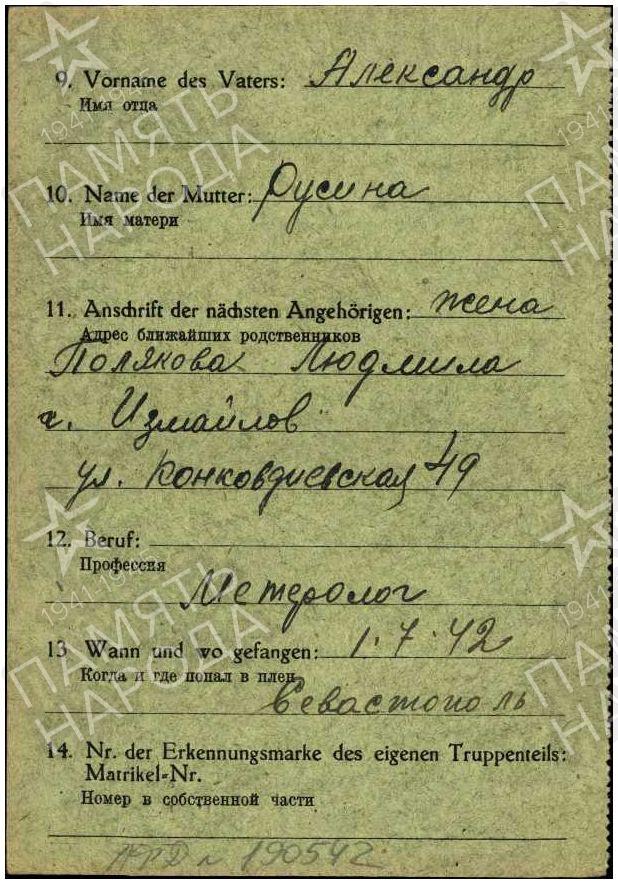 9. Vorname des Vaters: Александр
Имя отца
10. Name der Mutter: Русина
Имя матери
11. Anschrift der nächsten Angehörigen: жена
Адрес ближайших родственников
Полякова Людмила
г. Измаилов
ул. 49
12. Beruf:
Профессия
Метеролог
13 Wann und wo gefangen: 1.7.42
Когда и где попал в плен
Севастополь
14. Nr. der Erkennungsmarke des eigenen Truppenteils:
Matrikel-Nr.
Номер в собственной части
190542
ПАМЯТЬ НАРОДА
1941-1945